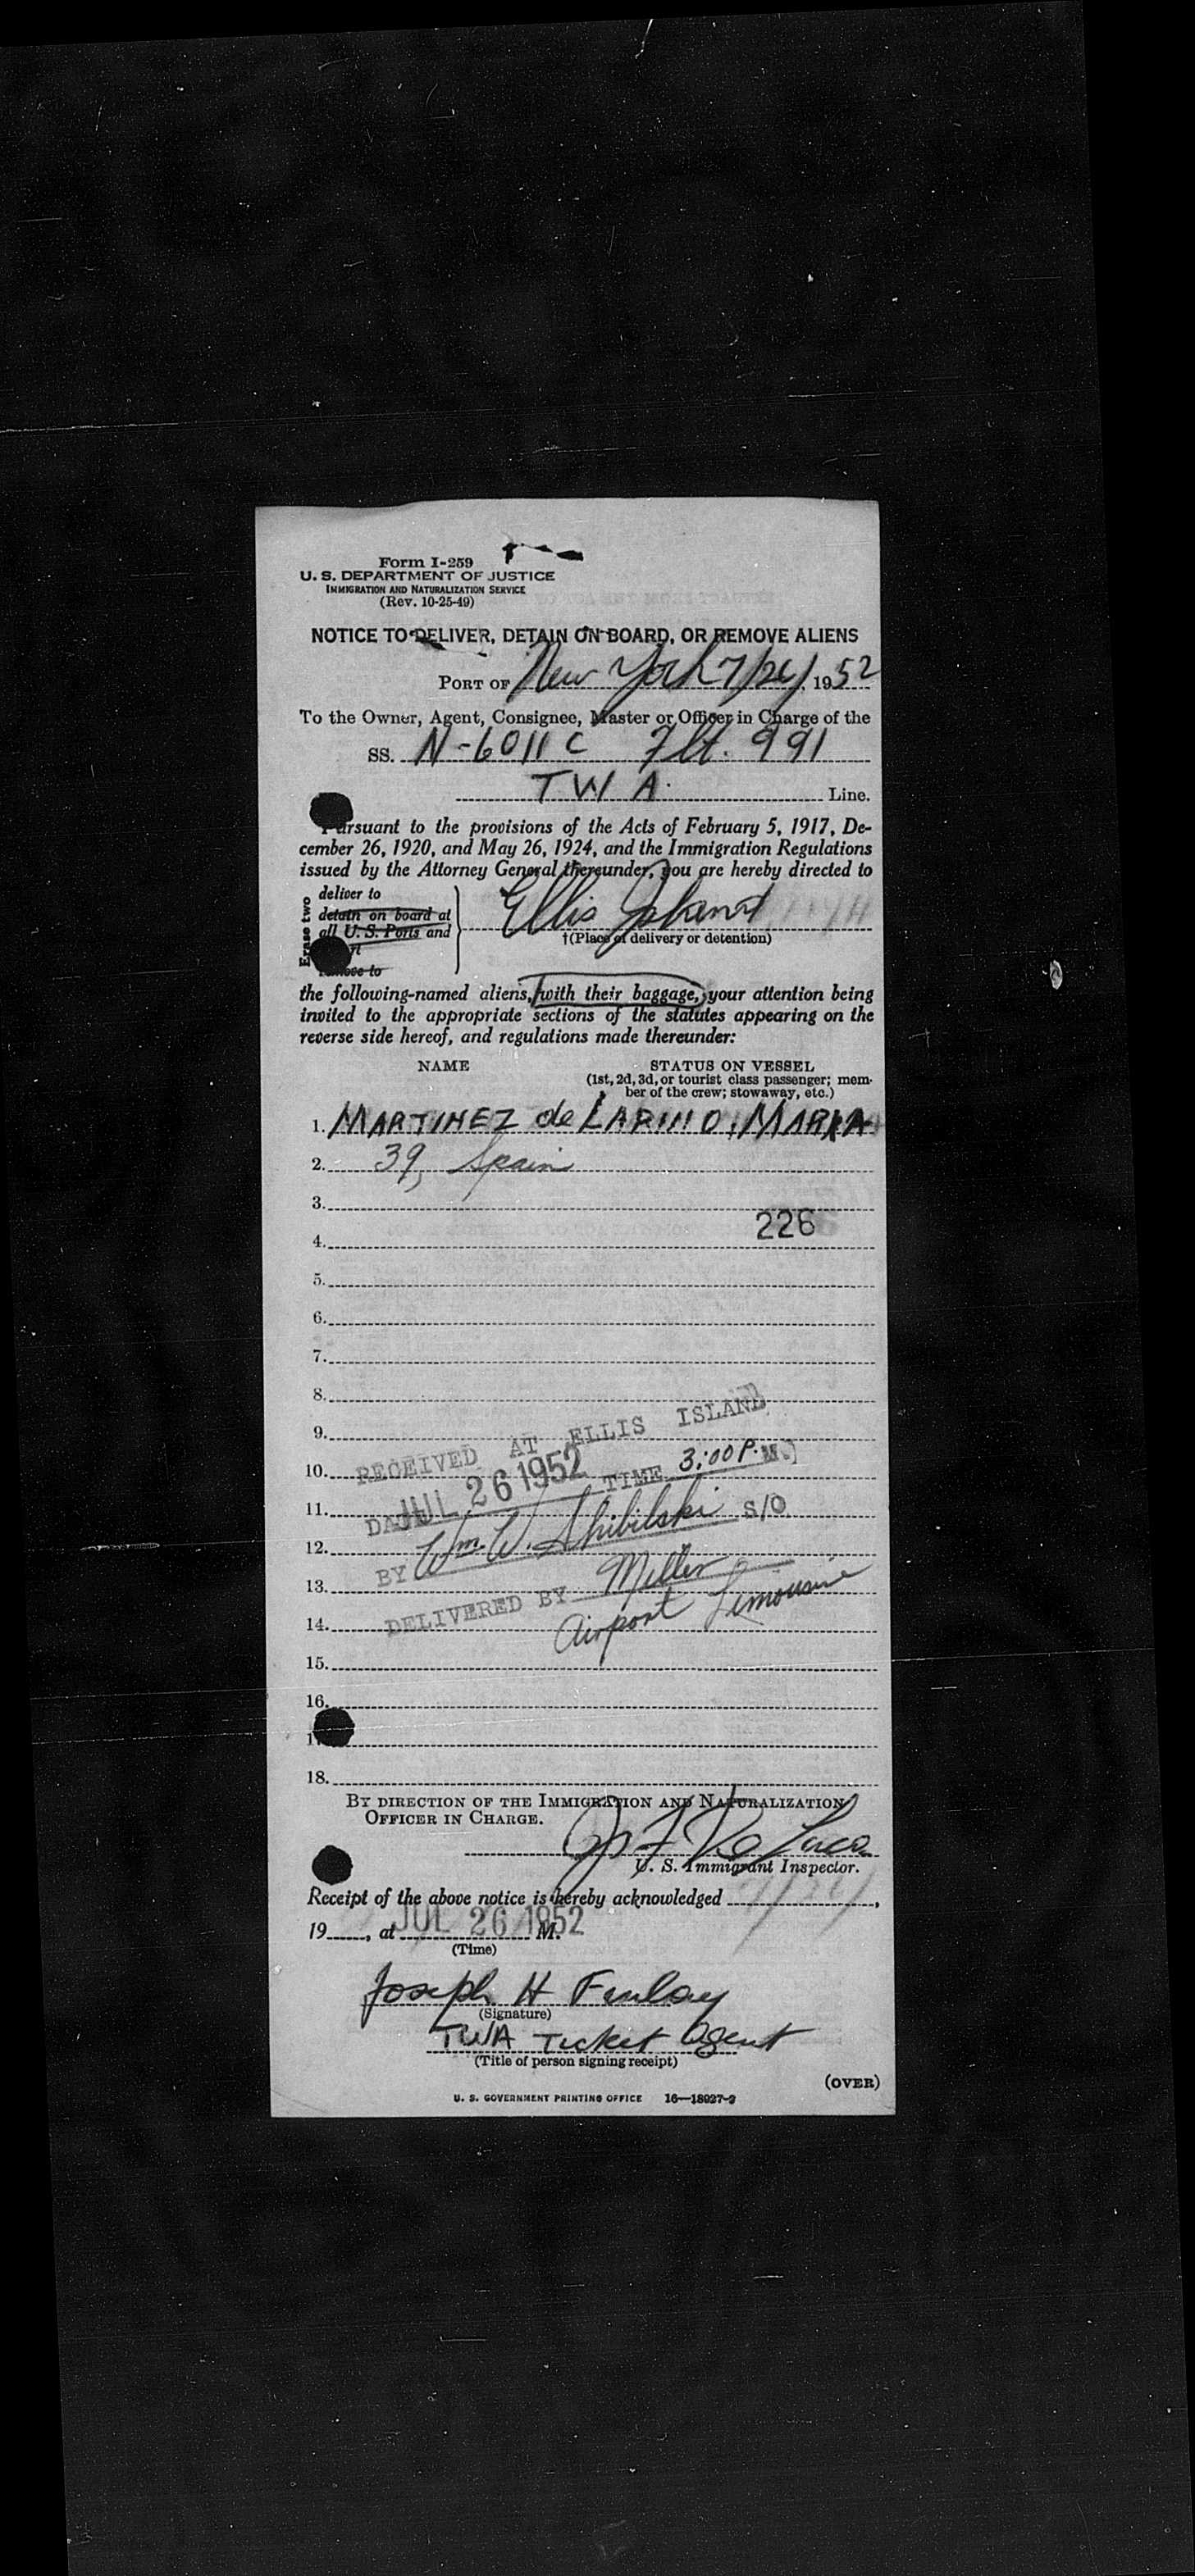 Form I-259
U. S. DEPARTMENT OF JUSTICE
IMMIGRATION AND NATURALIZATION SERVICE
(Rev. 10-25-49)
NOTICE TO DELIVER, DETAIN ON BOARD, OR REMOVE ALIENS
PORT OF New York 7/26/, 1952
To the Owner, Agent, Consignee, Master or Officer in Charge of the
SS. N-6011C Flt. 991
TWA Line.
Pursuant to the provisions of the Acts of February 5, 1917, De-
cember 26, 1920, and May 26, 1924, and the Immigration Regulations
issued by the Attorney General thereunder, you are hereby directed to
Erase two
deliver to
detain on board at
all U. S. Ports and
remove to
Ellis Island
†(Place of delivery or detention)
the following-named aliens, with their baggage, your attention being
invited to the appropriate sections of the statutes appearing on the
reverse side hereof, and regulations made thereunder:
NAME STATUS ON VESSEL
(1st, 2d, 3d, or tourist class passenger; mem-
ber of the crew; stowaway, etc.)
1. MARTINEZ de LARINO, MARIA
2. 39, Spain
3.
226
4.
5.
6.
7.
8.
9.
10.
11.
12.
13.
14.
15.
16.
17.
18.
RECEIVED AT ELLIS ISLAND
DATE JUL 26 1952 TIME 3:00 P.M.
BY Wm. W. Shibilski S/O
DELIVERED BY Miller
Airport Limousine
BY DIRECTION OF THE IMMIGRATION AND NATURALIZATION
OFFICER IN CHARGE.
U. S. Immigrant Inspector.
Receipt of the above notice is hereby acknowledged
19____, at JUL 26 1952 M.
(Time)
Joseph H Finlay
(Signature)
TWA Ticket Agent
(Title of person signing receipt)
(OVER)
U. S. GOVERNMENT PRINTING OFFICE 16—18927-2